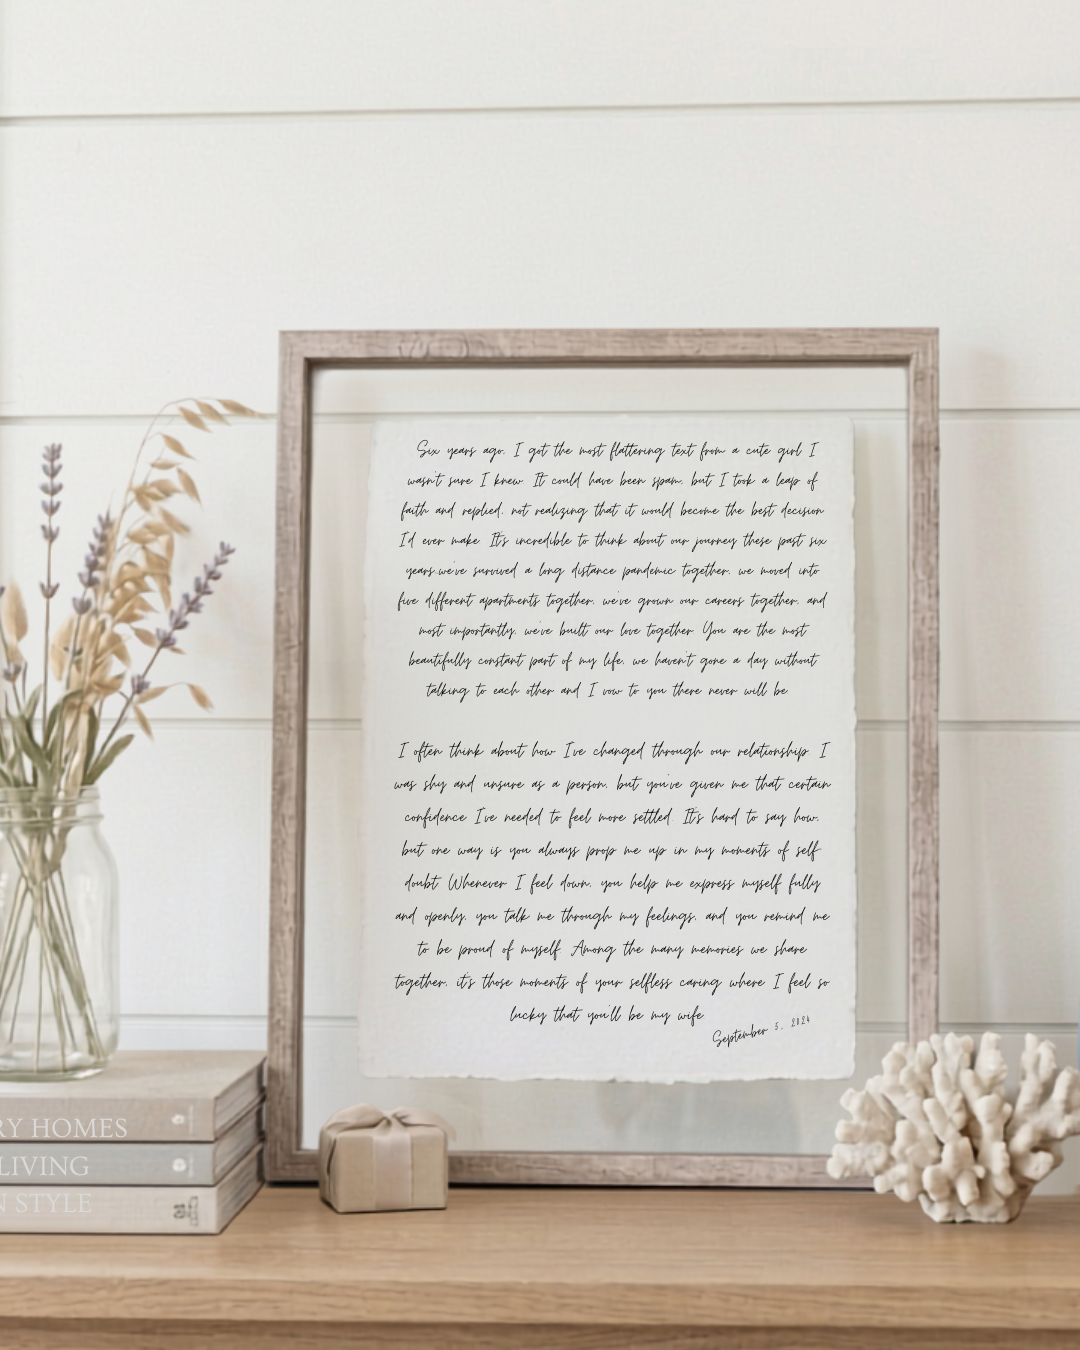 Six years ago, I got the most flattering text from a cute girl I
wasn't sure I knew. It could have been spam, but I took a leap of
faith and replied, not realizing that it would become the best decision
I'd ever make. It's incredible to think about our journey these past six
years..we've survived a long distance pandemic together, we moved into
five different apartments together, we've grown our careers together, and
most importantly, we've built our love together. You are the most
beautifully constant part of my life, we haven't gone a day without
talking to each other and I vow to you there never will be.
I often think about how I've changed through our relationship. I
was shy and unsure as a person, but you've given me that certain
confidence I've needed to feel more settled. It's hard to say how,
but one way is you always prop me up in my moments of self
doubt. Whenever I feel down, you help me express myself fully
and openly, you talk me through my feelings, and you remind me
to be proud of myself. Among the many memories we share
together, it's those moments of your selfless caring where I feel so
lucky that you'll be my wife.
September 5, 2024
RY HOMES
LIVING
N STYLE